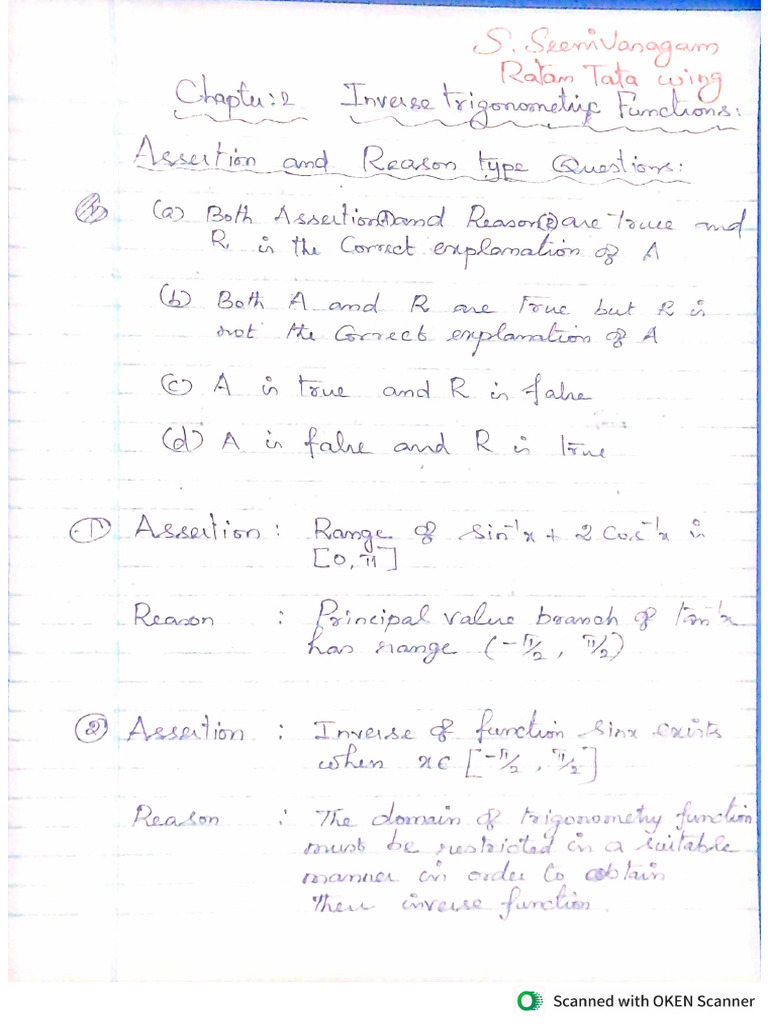 S. Seenivanagam
Ratan Tata wing
Chapter: 2 Inverse trigonometric Functions:
Assertion and Reason type Questions:
(a) Both Assertion(A) and Reason(R) are true and
R is the correct explanation of A
(b) Both A and R are true but R is
not the correct explanation of A
(c) A is true and R is false
(d) A is false and R is true
1 Assertion : Range of sin⁻¹x + 2 Cos⁻¹x is
[0, π]
Reason : Principal value branch of tan⁻¹x
has range (-π/2, π/2)
2 Assertion : Inverse of function sinx exists
when x∈ [-π/2, π/2]
Reason : The domain of trigonometry function
must be restricted in a suitable
manner in order to obtain
their inverse function.
Scanned with OKEN Scanner